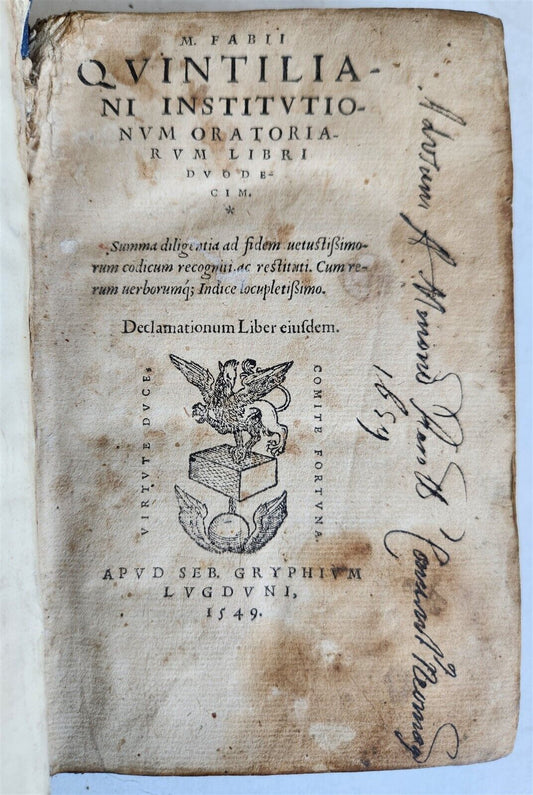 M. FABII
QVINTILIA-
NI INSTITVTIO-
NVM ORATORIA-
RVM LIBRI
DVODE-
CIM.
*
Summa diligentia ad fidem uetustißimo-
rum codicum recogniti ac restituti. Cum re-
rum uerborumq; Indice locupletißimo.
Declamationum Liber eiusdem.
VIRTVTE DVCE,
COMITE FORTVNA.
APVD SEB. GRYPHIVM
LVGDVNI,
1549.